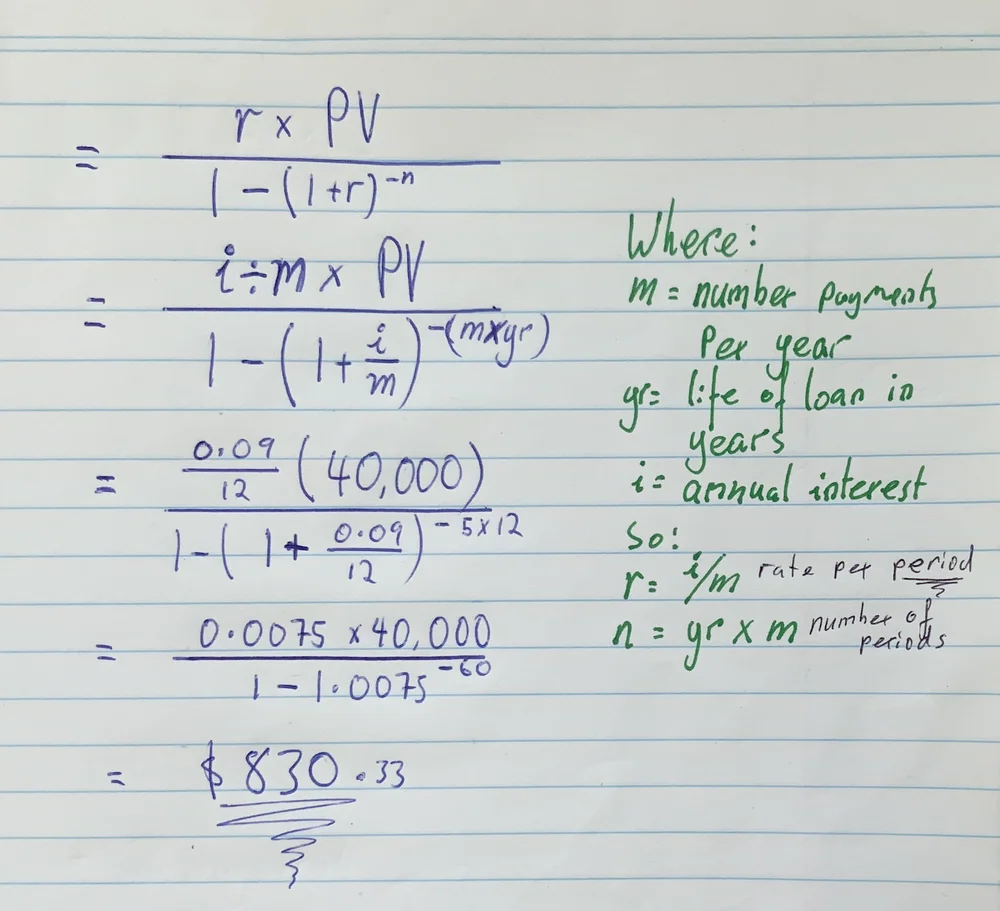 = r × PV
1 - (1+r)^-n
= i÷m × PV
1 - (1 + i/m)^-(m×yr)
= 0.09/12 (40,000)
1 - (1 + 0.09/12)^-5×12
= 0.0075 × 40,000
1 - 1.0075^-60
= $830.33
Where:
m = number payments
Per year
yr = life of loan in
years
i = annual interest
So:
r = i/m rate per period
n = yr × m number of
periods